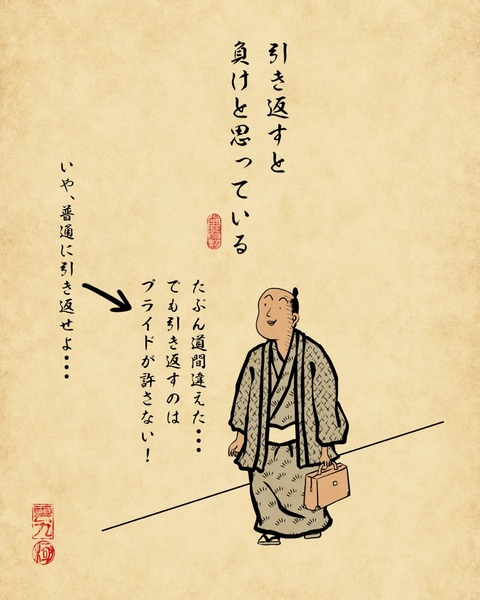 引き返すと
負けと思っている
たぶん道間違えた・・・
でも引き返すのは
プライドが許さない！
いや、普通に引き返せよ・・・